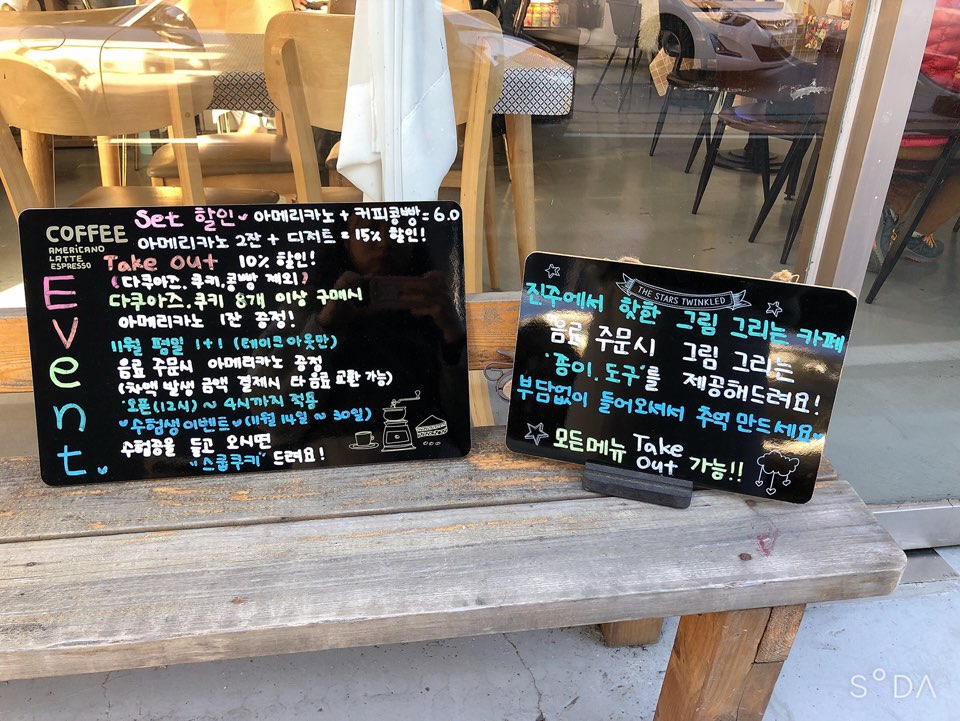 COFFEE
AMERICANO
LATTE
ESPRESSO
Event
Set 할인 아메리카노 + 커피콩빵 = 6.0
아메리카노 2잔 + 디저트 = 15% 할인!
Take out 10% 할인!
(다쿠아즈, 쿠키, 콩빵 제외)
다쿠아즈, 쿠키 8개 이상 구매시
아메리카노 1잔 증정!
11월 평일 1+1 (테이크아웃만)
음료 주문시 아메리카노 증정
(차액 발생 금액 결제시 타 음료 교환 가능)
오픈(12시) ~ 4시까지 적용
수험생 이벤트 (11월 14일 ~ 30일)
수험증을 들고 오시면
"스콥쿠키" 드려요!
THE STARS TWINKLED
진주에서 핫한 그림 그리는 카페
음료 주문시 그림 그리는
'종이, 도구'를 제공해드려요!
부담없이 들어오셔서 추억 만드세요
모든메뉴 Take Out 가능!!
SODA